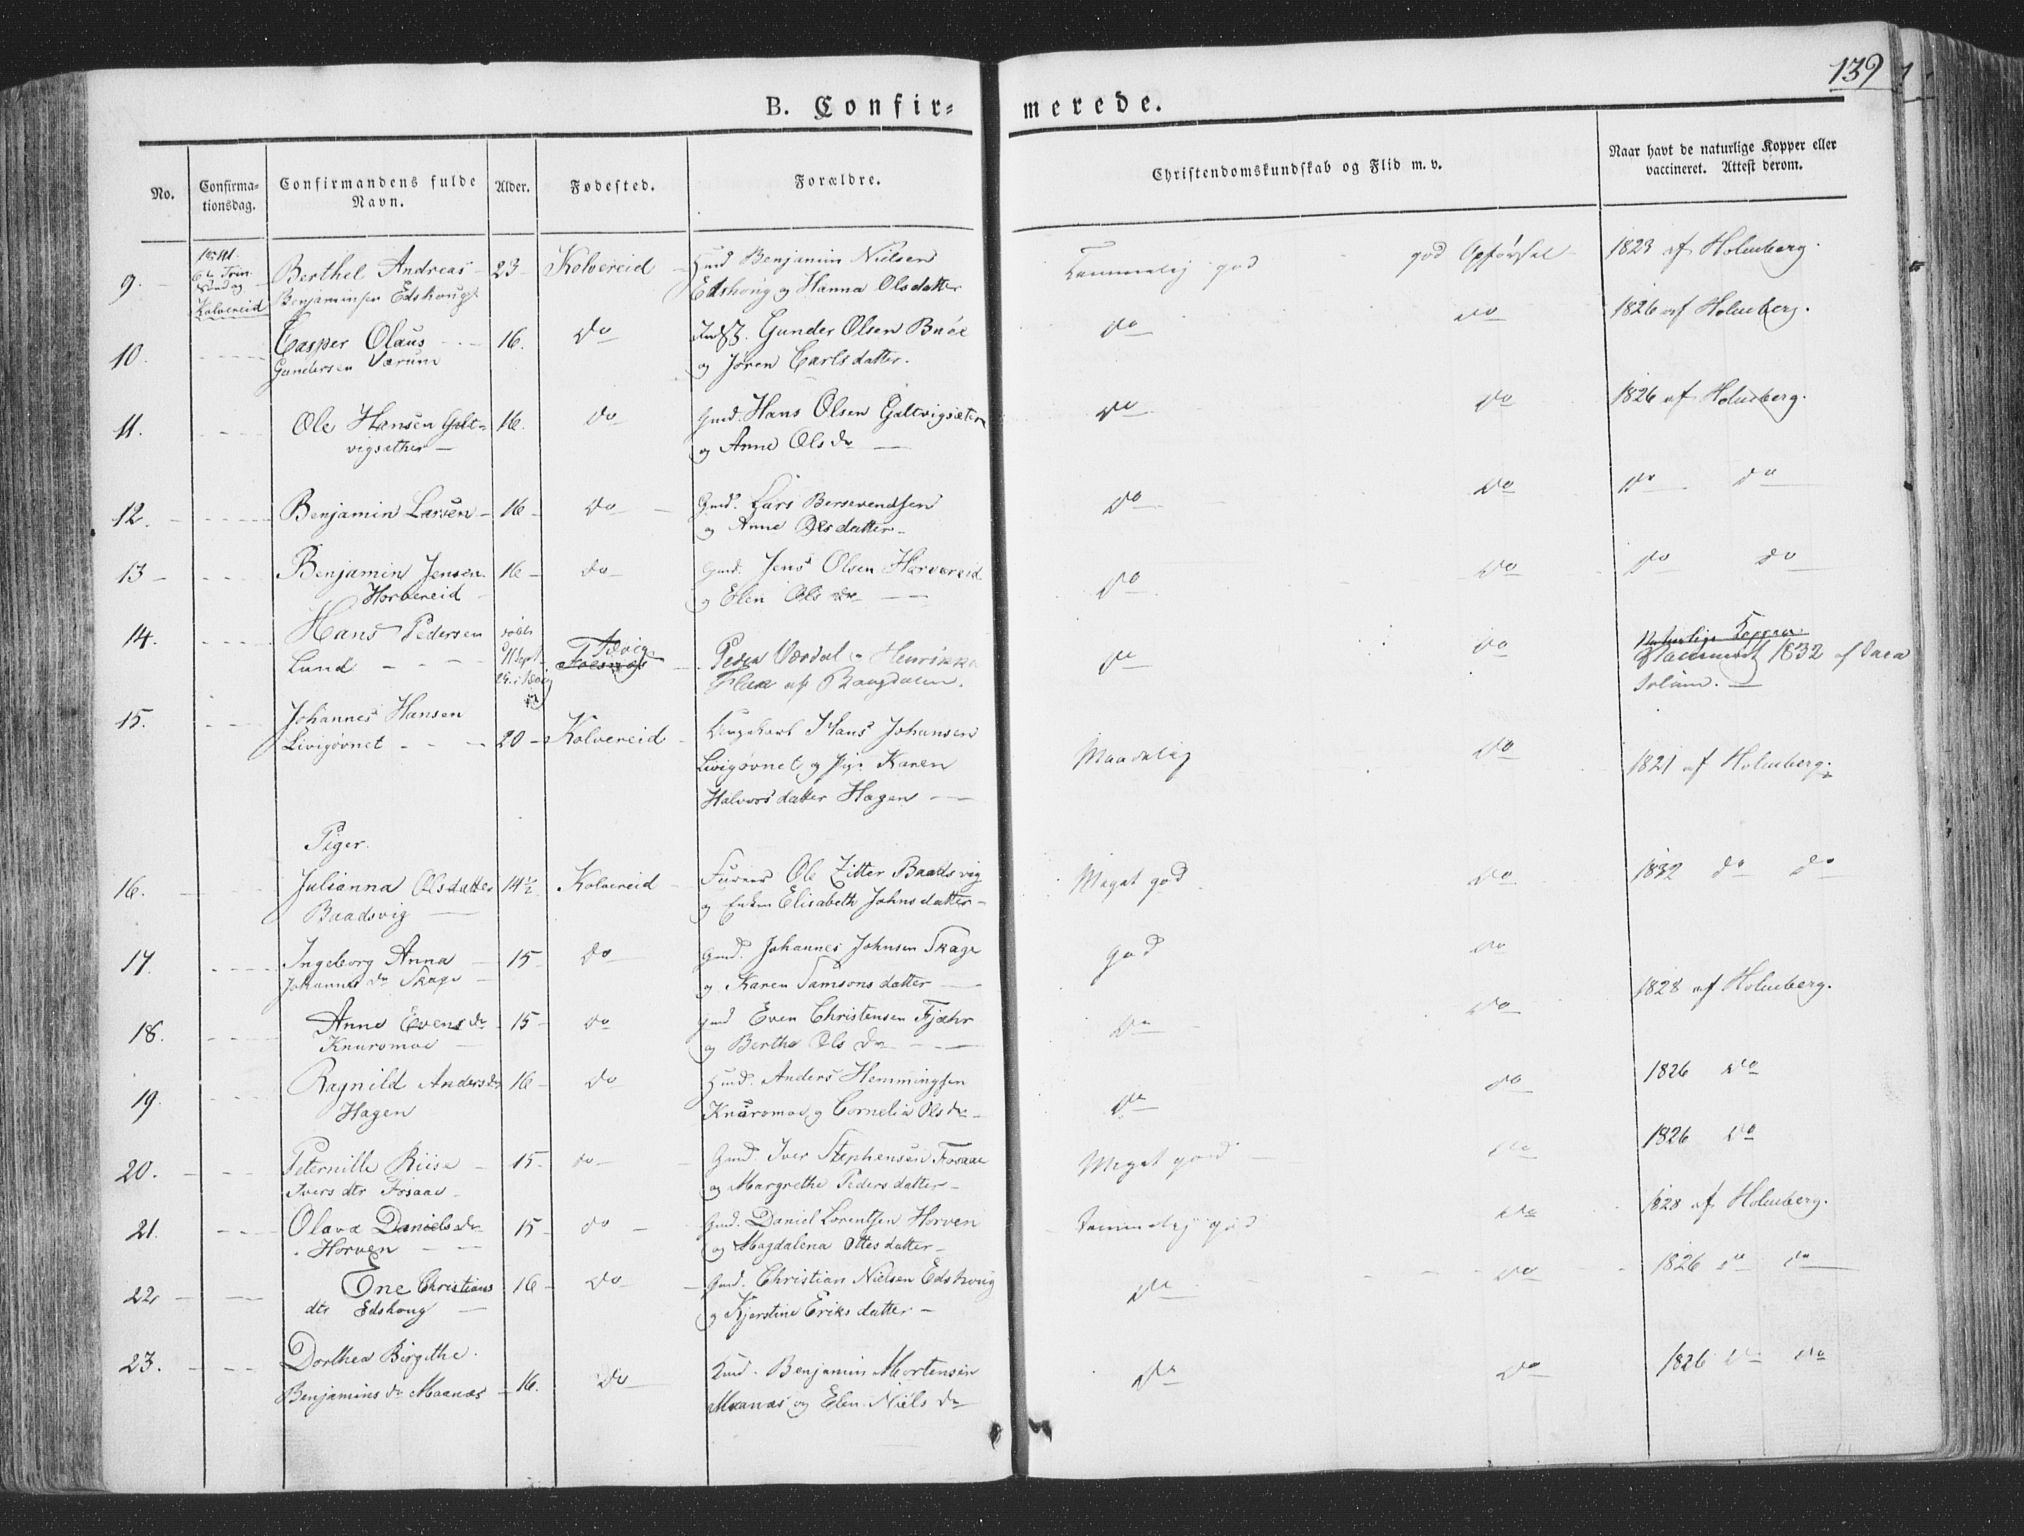 139
B. Confir=
merede.
No.
Confirma-
tionsdag.
Confirmandens fulde
Navn.
Alder.
Fødested.
Forældre.
Christendomskundskab og Flid m. v.
Naar havt de naturlige Kopper eller
vaccineret. Attest derom.
9. Kolvereid Berthel Andreas 23 Kolvereid Benjamin Nielsen god god Opførsel 1823 af Holmberg.
Benjaminsen Edshoug Edshoug og Hanna Olsdatter
10. Casper Olaus 16. do Gunder Olsen Buöe do do 1826 af Holmberg.
Gundersen Værum og Jören Carlsdatter.
11. Ole Hansen Galt= 16. do Gmd. Hans Olsen Galtvigsæter do do 1826 af Holmberg.
vigsæther og Anne Olsdr
12. Benjamin Larsen 16 do Gmd. Lars Bersevendsen do do do do
og Anne Olsdatter
13 Benjamin Jensen 16 do Gmd. Jens Olsen Horvereid do do do do
Horvereid og Elen Olsdr
14. Hans Pedersen Foesnæs Peder Værdal og Henrikka do do Naturlige Kopper
Lund 1832 af
15. Johannes Hansen 20 Kolvereid Hans Johansen Maadelig do 1821 af Holmberg.
Livigövnet Livigövnet og Pige Karen
Halvorsdatter Hagen
Piger.
16. Julianna Olsdatter 14½ Kolvereid Ole Zitter Baadsvig Meget god do 1832 do do
Baadsvig og Enken Elisabeth Johnsdatter
17. Ingeborg Anna 15 do Gmd. Johannes Johnsen Skage god do
Johannesdr Skage og Karen Samsonsdatter
18. Anne Evensdr 15 do Gmd Even Christensen Fjæhr do do 1828 af Holmberg.
Knaromoe og Berthe Olsdr
19. Ragnild Andersdr 16 do Anders Hemmingsen do do 1826 do
Hagen Knaromoe og Cornelia Olsdr
20. Peternille Riise 15 do Gmd. Iver Stephensen Fosaae Meget god do 1826 do
Iversdtr Fosaae og Margrethe Pedersdatter
21. Olava Danielsdr 15 do Gmd. Daniel Lorentsen Horven Temmelig god do 1828 af Holmberg.
Horven og Magdalena Ottesdatter
22 Ene Christians 16 do Gmd. Christian Nielsen Edshoug do do 1826 do do
dtr Edshoug og Kjerstine Eriksdatter
23. Dorthea Birgithe 16. do Benjamin Mortensen do do 1826 do do
Benjaminsdr Maanæs Maanæs og Elen Nielsdr